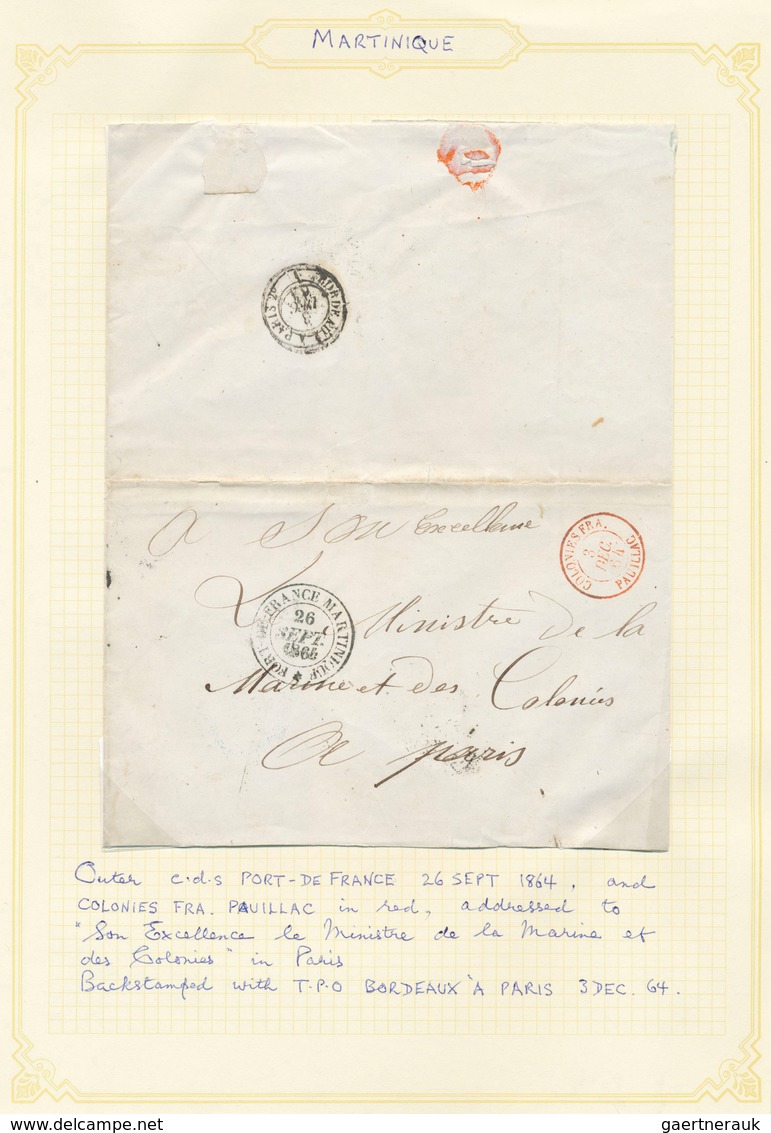 MARTINIQUE
BORDEAUX A PARIS 2°
3
DEC.
A Son Excellence
COLONIES FRA. PAUILLAC
3
DEC.
64
FORT-DE-FRANCE MARTINIQUE
26
SEPT.
1864
Ministre de la
Marine et des Colonies
A paris
Outer c.d.s PORT-DE FRANCE 26 SEPT 1864, and
COLONIES FRA. PAUILLAC in red, addressed to
"Son Excellence le Ministre de la Marine et
des Colonies" in Paris
Backstamped with T.P.O BORDEAUX A PARIS 3 DEC. 64.
gaertnerauk